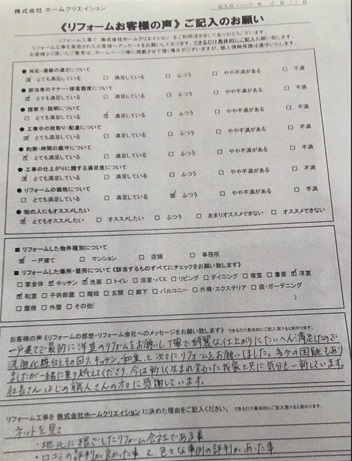 株式会社 ホームクリエイション
《リフォームお客様の声》ご記入のお願い
リフォーム工事で 株式会社ホームクリエイション をご利用頂きましてありがとうございます。
● 対応・連絡の速さについて
☑ とても満足している □ 満足している □ ふつう □ やや不満がある □ 不満
● 担当者のマナー・接客態度について
☑ とても満足している □ 満足している □ ふつう □ やや不満がある □ 不満
● 提案力・説明について
□ とても満足している ☑ 満足している □ ふつう □ やや不満がある □ 不満
● 工事中の段取り・配慮について
☑ とても満足している □ 満足している □ ふつう □ やや不満がある □ 不満
● 約束・時間の厳守について
☑ とても満足している □ 満足している □ ふつう □ やや不満がある □ 不満
● 工事の仕上がりに関する満足度について
☑ とても満足している □ 満足している □ ふつう □ やや不満がある □ 不満
● リフォームの価格について
□ とても満足している □ 満足している ☑ ふつう □ やや不満がある □ 不満
● 他の人にもオススメしたい
☑ とてもオススメしたい □ オススメしたい □ ふつう □ あまりオススメできない □ オススメできない
■ リフォームした物件種別について
☑ 一戸建て □ マンション □ 店舗 □ 事務所
■ リフォームした場所・箇所について《該当するものすべてにチェックをお願い致します》
□ 家全体 ☑ キッチン ☑ 洗面 □ トイレ □ 浴室・バス □ リビング □ ダイニング □ 寝室 □ 書斎 ☑ 洋室
☑ 和室 □ 子供部屋 □ 階段 □ 玄関 □ 廊下 □ バルコニー □ 外構・エクステリア □ 庭・ガーデニング
□ 屋根 □ 外壁 □ その他（
お客様の声《リフォームの感想・リフォーム会社へのメッセージをお願い致します》
一戸建てで最初に洋室のリフォームをお願いし丁寧で綺麗な仕上がりにたいへん満足したので
洗面化粧台とその回り、キッチン、和室、と次々にリフォームをお願いしました。
ましたが一緒に乗り越えてくださり、今は新しく生まれ変わった我家と共に気分も一新しています。
社長さんはじめ職人さんの方々に感謝しています。
リフォーム工事を 株式会社ホームクリエイション に決めた理由をご記入ください。
ネットを見て
・地元に根ざしたリフォーム会社である事
・口コミの評判が良かった事